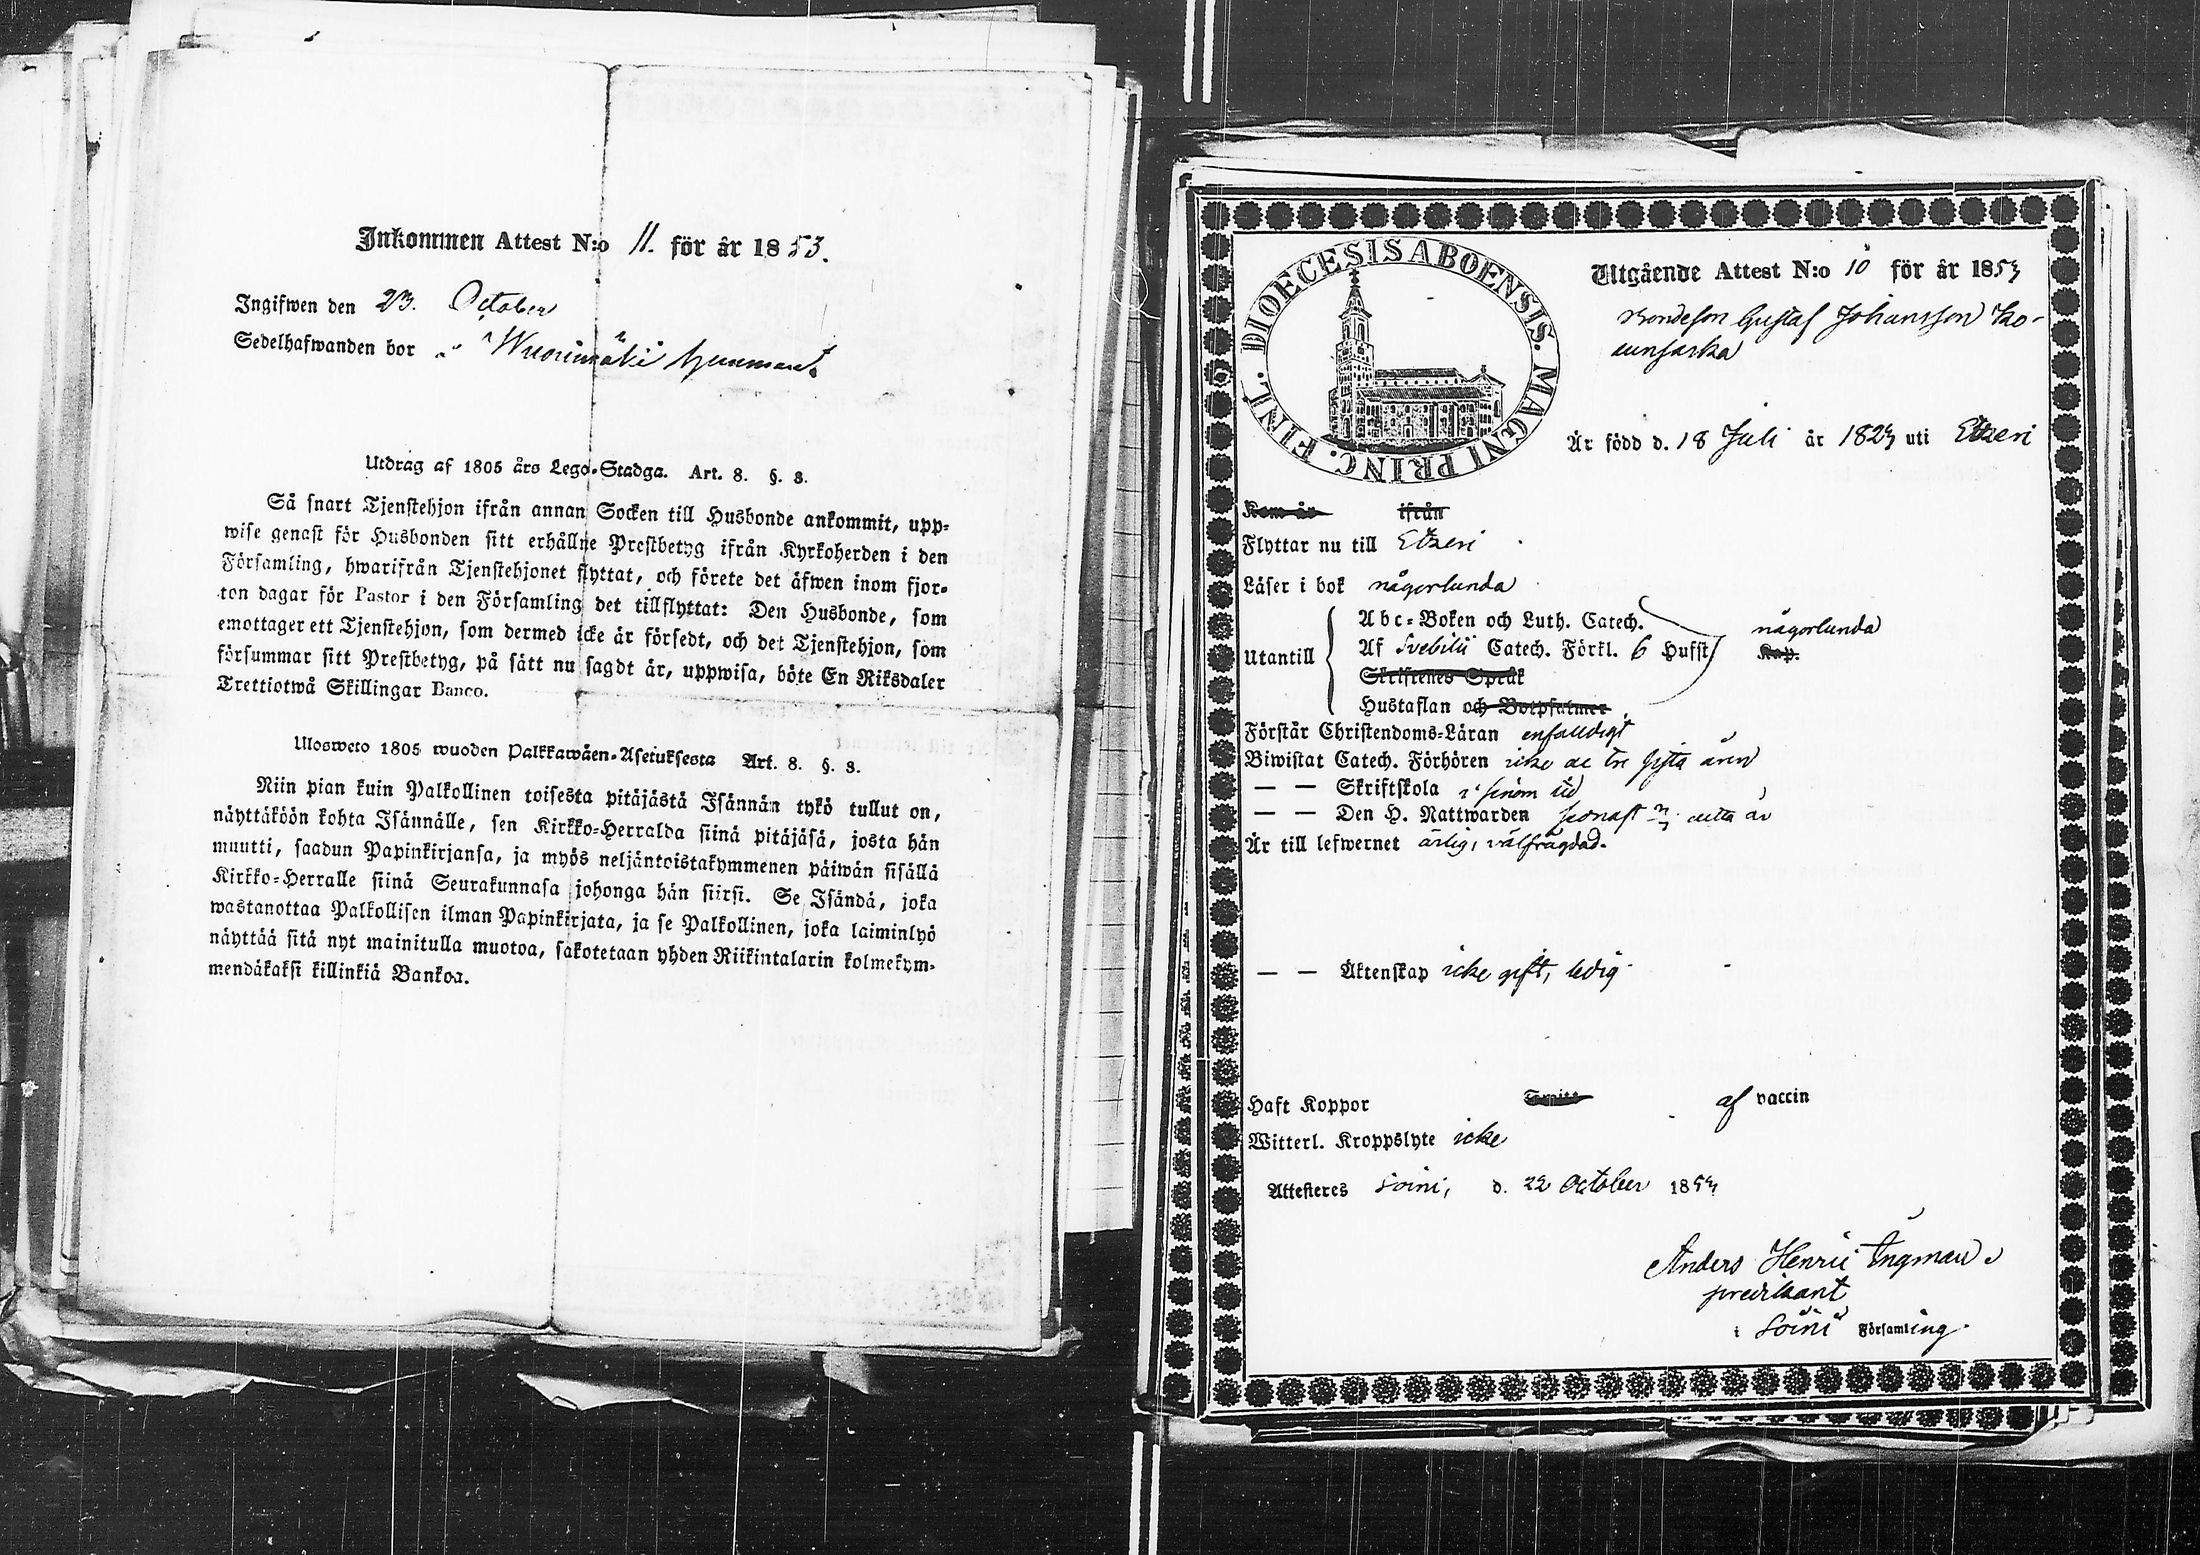 Inkommen Attest N:o 11. för år 1853.
Ingifwen den 23. October
Sedelhafwanden bor i Wuorimäki hemmant
Utdrag af 1805 års Lego-Stadga. Art. 8. §. 3.
Så snart Tjenstehjon ifrån annan Socken till Husbonde ankommit, upp-
wise genast för Husbonden sitt erhållne Prestbetyg ifrån Kyrkoherden i den
Församling, hwarifrån Tjenstehjonet flyttat, och förete det äfwen inom fjor-
ton dagar för Pastor i den Församling det tillflyttat: Den Husbonde, som
emottager ett Tjenstehjon, som dermed icke är försedt, och det Tjenstehjon, som
försummar sitt Prestbetyg, på sätt nu sagdt är, uppwisa, böte En Riksdaler
Trettiotwå Skillingar Banco.
Ulosweto 1805 wuoden Palkkawäen-Asetuksesta Art. 8. §. 3.
Niin pian kuin Palkollinen toisesta pitäjästä Isännän tykö tullut on,
näyttäköön kohta Isännälle, sen Kirkko-Herralda siinä pitäjäsä, josta hän
muutti, saadun Papinkirjansa, ja myös neljäntoistakymmenen päiwän sisällä
Kirkko-Herralle siinä Seurakunnasa johonga hän siirsi. Se Isändä, joka
wastanottaa Palkollisen ilman Papinkirjata, ja se Palkollinen, joka laiminlyö
näyttää sitä nyt mainitulla muotoa, sakotetaan yhden Riikintalarin kolmekym-
mendäkaksi killinkiä Bankoa.
DIOECESIS ABOENSIS. MAGNI PRINC. FINL.
Utgående Attest N:o 10 för år 1853
Bondeson Gustaf Johansson Ko-
Är född d. 18 Juli år 1823 uti Etzeri
Kom år ifrån
Flyttar nu till Etzeri
Läser i bok någorlunda
Abc-Boken och Luth. Catech. någorlunda
Utantill Af Svebilii Catech. Förkl. 6 Hufst Kap.
Skriftenes Språk
Hustaflan och Botpsalmer
Förstår Christendoms-Läran enfaldigt
Biwistat Catech. Förhören icke de tre sista åren
— — Skriftskola i sinom tid
— — Den H. Nattwarden senast detta år
Är till lefwernet ärlig, välfrägdad.
— — Äktenskap icke gift, ledig
Haft Koppor af vaccin
Witterl. Kroppslyte icke
Attesteres Soini, d. 22 October 1853
Anders Henric Ingman
predikant
i Soini Församling.